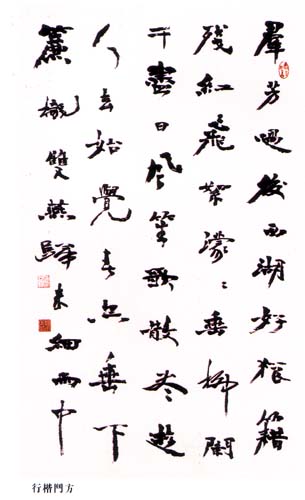 羣芳過後西湖好狼籍
殘紅飛絮濛〻垂柳闌
干盡日風笙歌散尽遊
人去始覺春空垂下
簾櫳雙燕歸來細雨中
行楷門方